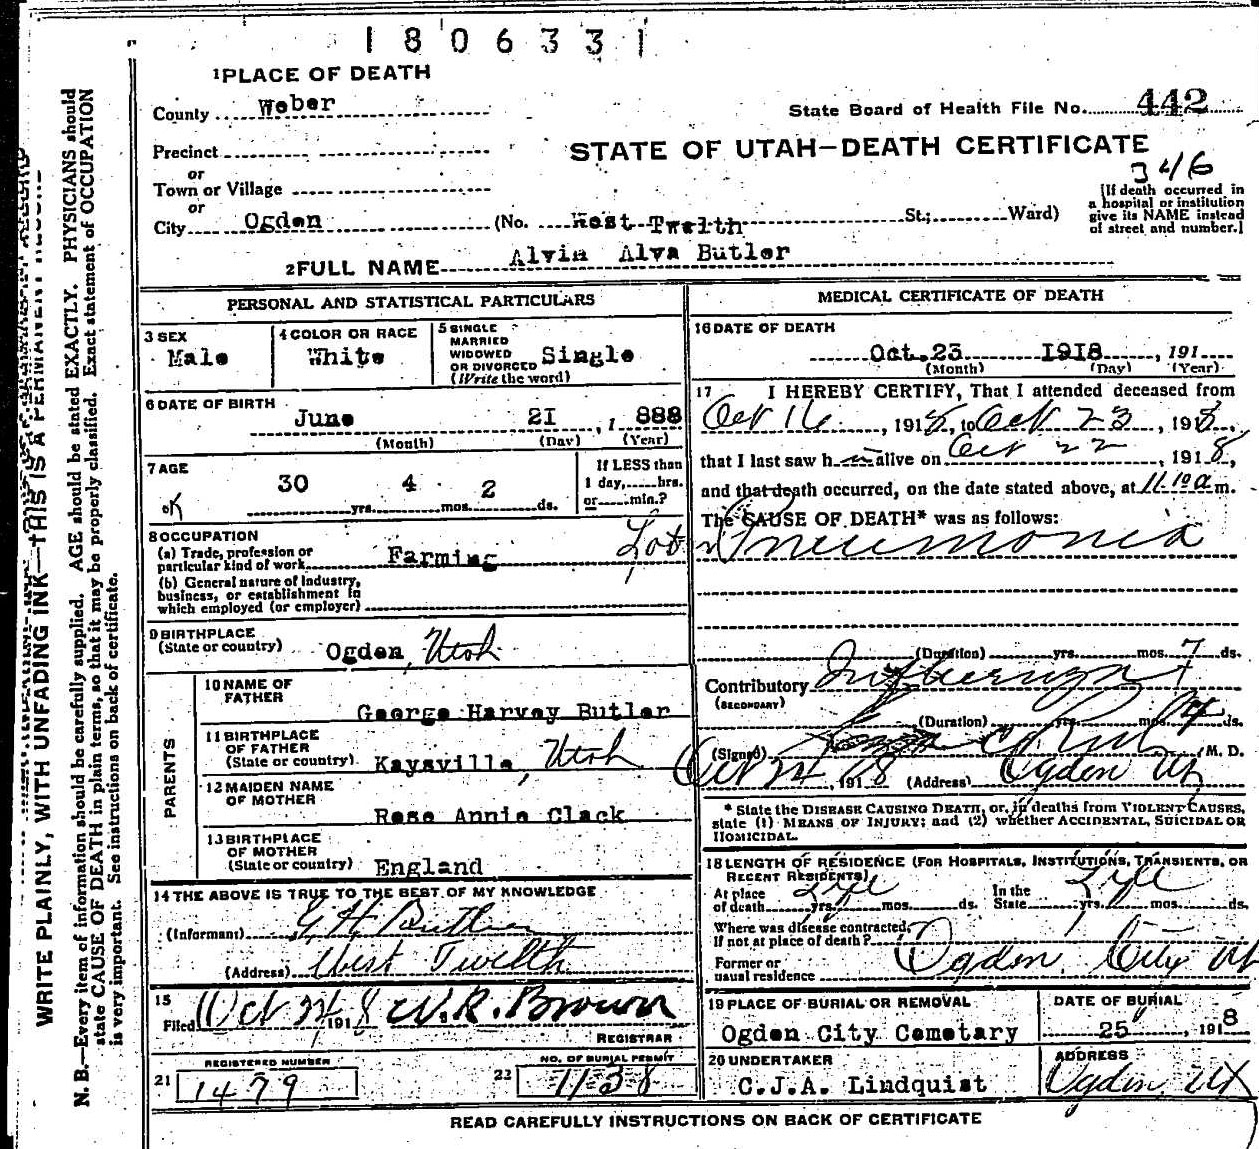 1806331
1 PLACE OF DEATH
County Weber
State Board of Health File No. 442
Precinct
STATE OF UTAH—DEATH CERTIFICATE
or
346
Town or Village
[If death occurred in
a hospital or institution
give its NAME instead
of street and number.]
or
City Ogden (No. West Twelth St.; Ward)
2 FULL NAME Alvin Alva Butler
PERSONAL AND STATISTICAL PARTICULARS
3 SEX
Male
4 COLOR OR RACE
White
5 SINGLE
MARRIED
WIDOWED
OR DIVORCED Single
(Write the word)
6 DATE OF BIRTH
June 21, 1888
(Month) (Day) (Year)
7 AGE
30 yrs. 4 mos. 2 ds.
If LESS than
1 day,......hrs.
or......min.?
OK
8 OCCUPATION
(a) Trade, profession or
particular kind of work Farming
(b) General nature of Industry,
business, or establishment in
which employed (or employer)
9 BIRTHPLACE
(State or country) Ogden, Utah
PARENTS
10 NAME OF
FATHER
George Harvey Butler
11 BIRTHPLACE
OF FATHER
(State or country) Kaysville, Utah
12 MAIDEN NAME
OF MOTHER
Rose Annie Clack
13 BIRTHPLACE
OF MOTHER
(State or country) England
14 THE ABOVE IS TRUE TO THE BEST OF MY KNOWLEDGE
(Informant) G H Butler
(Address) West Twelth
15
Filed Oct 24, 1918 W. R. Brown
REGISTRAR
REGISTERED NUMBER
21 1479
NO. OF BURIAL PERMIT
22 1138
MEDICAL CERTIFICATE OF DEATH
16 DATE OF DEATH
Oct. 23 1918, 191
(Month) (Day) (Year)
17 I HEREBY CERTIFY, That I attended deceased from
Oct 16, 1918, to Oct 23, 1918,
that I last saw h im alive on Oct 22, 1918,
and that death occurred, on the date stated above, at 11 10 a m.
The CAUSE OF DEATH* was as follows:
Pneumonia
(Duration) yrs. mos. 7 ds.
Contributory Influenza
(SECONDARY)
(Duration) yrs. mos. ds.
(Signed) M. D.
Oct 24, 1918 (Address) Ogden Ut
* State the DISEASE CAUSING DEATH, or, in deaths from VIOLENT CAUSES,
state (1) MEANS OF INJURY; and (2) whether ACCIDENTAL, SUICIDAL OR
HOMICIDAL.
18 LENGTH OF RESIDENCE (FOR HOSPITALS, INSTITUTIONS, TRANSIENTS, OR
RECENT RESIDENTS)
At place
of death Life yrs. mos. ds.
In the
State Life yrs. mos. ds.
Where was disease contracted,
If not at place of death?
Former or
usual residence Ogden City Ut
19 PLACE OF BURIAL OR REMOVAL
Ogden City Cemetary
DATE OF BURIAL
25, 1918
20 UNDERTAKER
C.J.A. Lindquist
ADDRESS
Ogden, Ut
READ CAREFULLY INSTRUCTIONS ON BACK OF CERTIFICATE
WRITE PLAINLY, WITH UNFADING INK—THIS IS A PERMANENT RECORD
N. B.—Every item of information should be carefully supplied. AGE should be stated EXACTLY. PHYSICIANS should
state CAUSE OF DEATH in plain terms, so that it may be properly classified. Exact statement of OCCUPATION
is very important. See instructions on back of certificate.